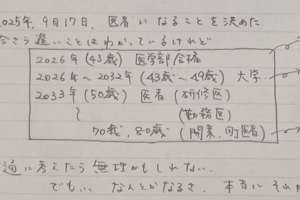 025年, 9月17日, 医者になることを決めた
今さら遅いことはわかっているけれど
2026年 (43歳) 医学部合格
2026年〜2032年 (43歳〜49歳) 大学
2033年 (50歳) 医者 (研修医)
〜 (勤務医)
70歳, 80歳 (開業, 町医者)
通に考えたら無理かもしれない.
でも... なんとかなるさ. 本当に それ